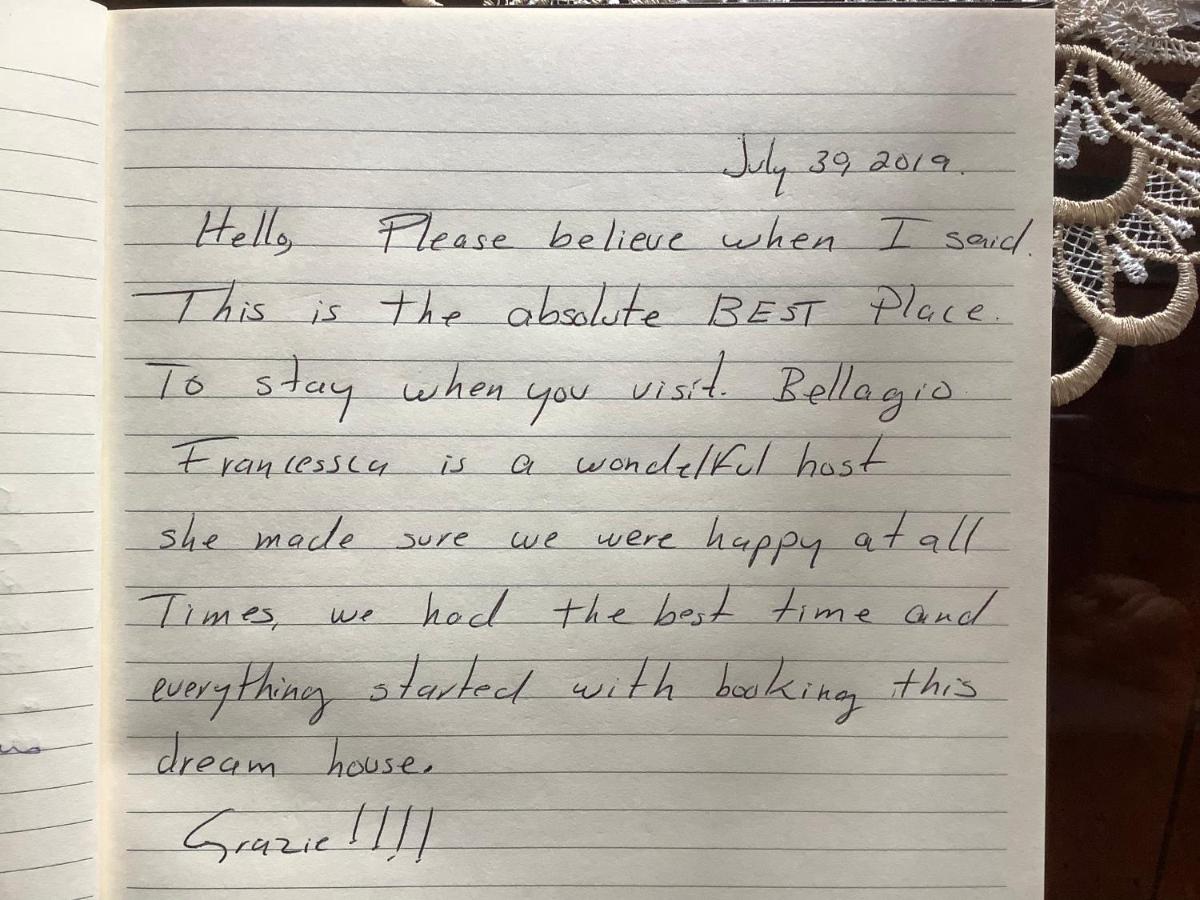 July 39, 2019.
Hello, Please believe when I said.
This is the absolute BEST Place.
To stay when you visit. Bellagio
Francessca is a wondelful host
she made sure we were happy at all
Times, we had the best time and
everything started with booking this
dream house.
Grazie!!!!